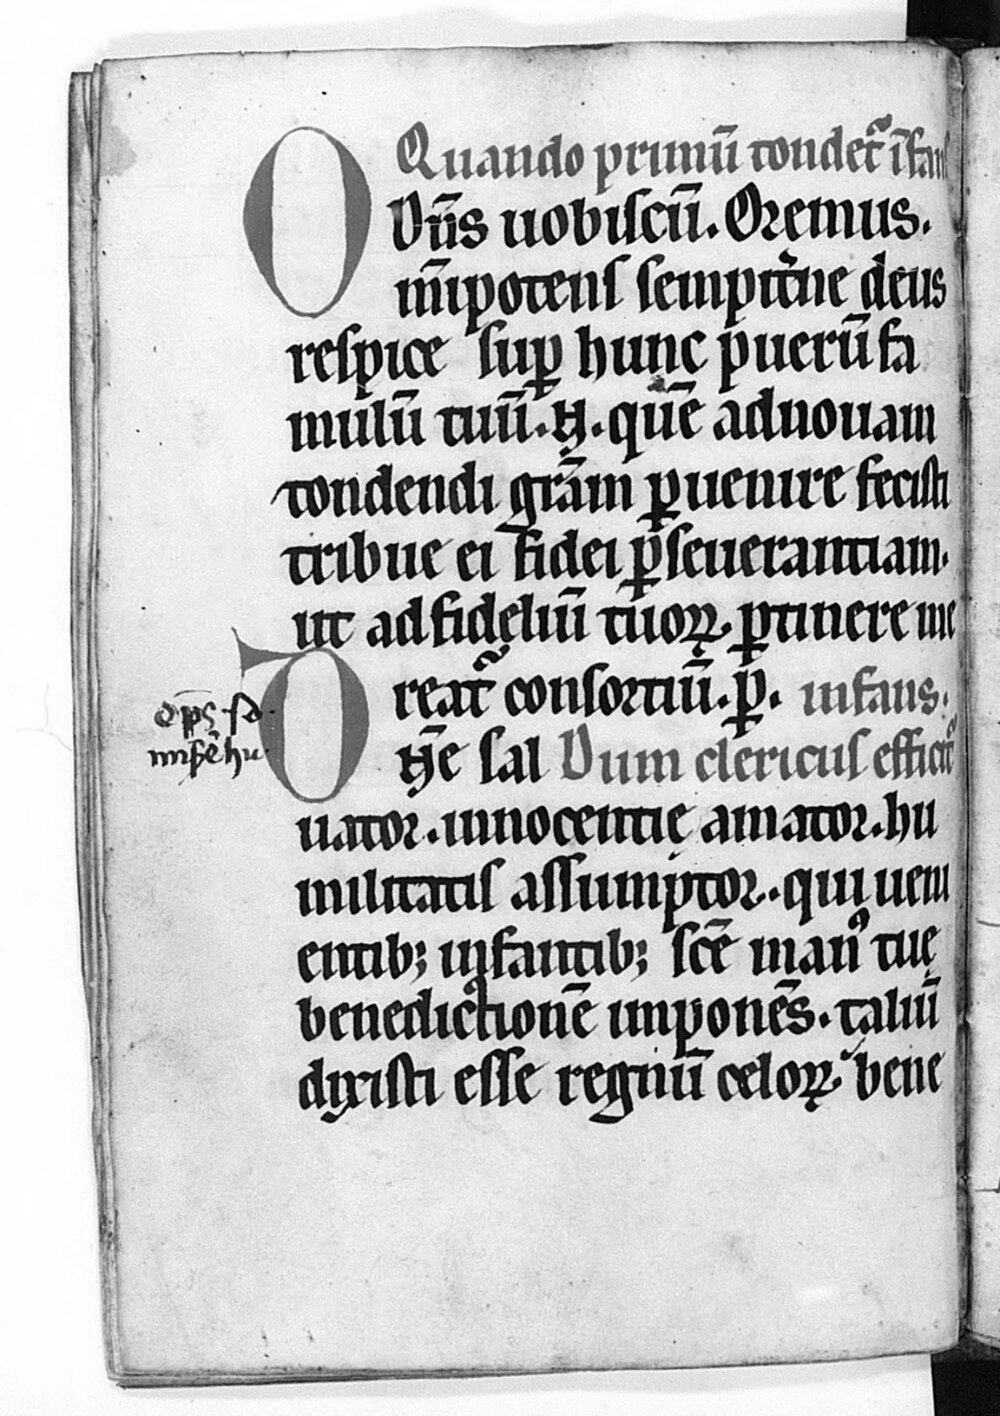 Quando primū tondet᷑ īfans
Dn̄s uobiscū. Oremus.
Om̄ipotens sempit̾ne deus
respice suꝑ hunc puerū fa
mulū tuū. N. quē ad nouam
tondendi gr̄am ꝑuenire fecisti
tribue ei fidei ꝑseuerantiam.
ut ad fideliū tuoꝝ. ꝑtinere me
reat᷑ consortiū. ꝑ. infans.
O n̄e sal Dum clericus efficit᷑
uator. innocentię amator. hu
militatis assumptor. qui ueni
entib; infantib; sc̄e manꝰ tuę
benedictionē imponēs. taliū
dixisti esse regnū celoꝝ bene